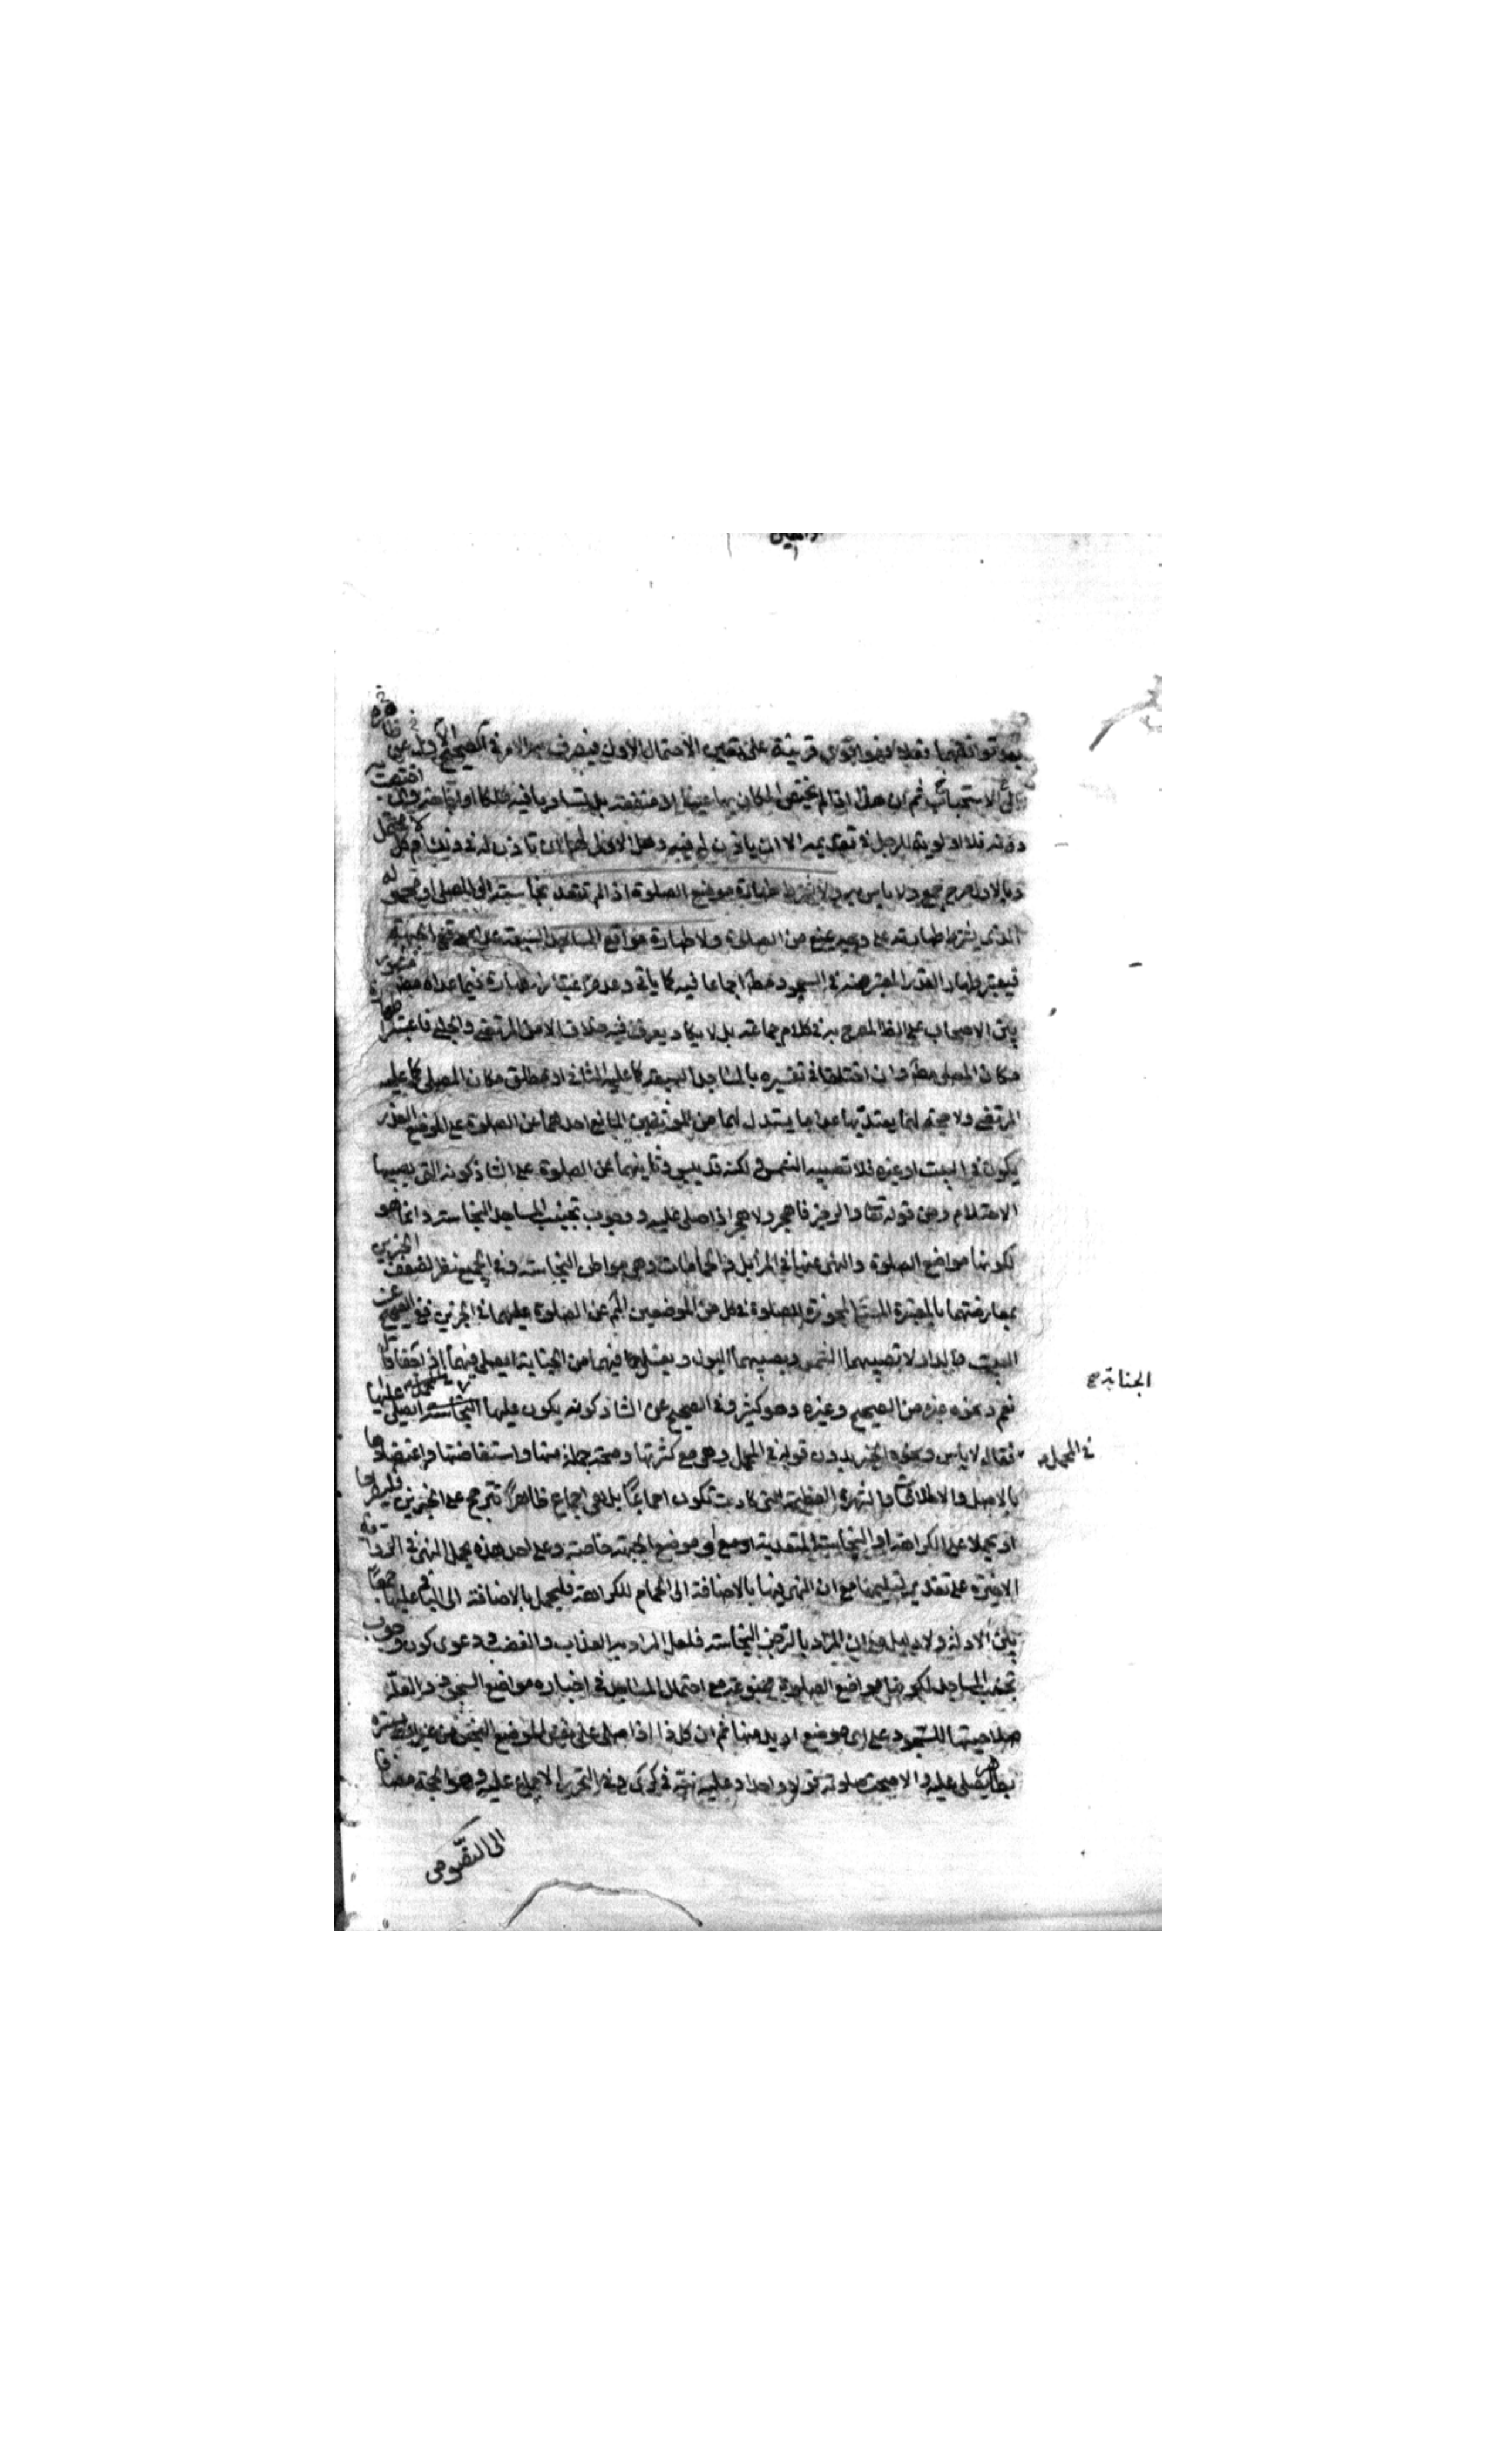 بعد توافقهما فهو اقوى قرينة على تعيين الاحتمال الاول فيصرف به الامر في الصحيح الاول عن ظاهره
الى الاستحباب ثم ان هذا اذا لم يختص المكان بها عينا او منفعة بل تساويا فيه ملكا او اباحة وان اختصت
به فلا اولوية للرجل في تقديمه الا ان ياذن له فيه وهل الاولى لها ان تاذن له في ذلك ام لا
وبالاول صرح جمع ولا باس به ولا يشترط طهارة موضع الصلوة اذا لم تتعد نجاسته الى المصلي او محموله
الذي يشترط طهارته على وجه يمنع من الصلوة ولا طهارة مواقع المساجد السبعة عدا موقع الجبهة
فيعتبر طهارة القدر المعتبر منه في السجود مطلقا اجماعا فيه كما ياتي وعدم اعتبار الطهارة فيما عداه مشهور
بين الاصحاب على الظاهر المصرح به في كلام جماعة بل لا يكاد يعرف فيه خلاف الا من المرتضى والحلبي فاعتبرا طهارة
مكان المصلي مطلقا وان اختلفا في تفسيره بالمساجد السبعة كما عليه الثاني او بمطلق مكان المصلي كما عليه
المرتضى ولا حجة لهما يعتد بها عدا ما يستدل لهما من الموثقين المانع احدهما عن الصلوة على الموضع القذر
يكون في البيت او غيره فلا تصيبه الشمس لكنه قد يبس وثانيهما عن الصلوة على الشاذكونة التي يصيبها
الاحتلام ومن قوله تعالى والرجز فاهجر ولا هجر اذا صلى عليه ووجوب تجنيب المساجد النجاسة وانما هو
لكونها مواضع الصلوة والنهي عنها في المزابل والحمامات وهي مواطن النجاسة وفي الجميع نظر لضعف الخبرين
بمعارضتهما بالمعتبرة المستفيضة المجوزة للصلوة في كل من الموضعين المنهي عن الصلوة عليهما في الخبرين ففي الصحيح عن
البيت والدار لا تصيبهما الشمس ويصيبهما البول ويغتسل فيهما من الجنابة ايصلى فيهما اذا جفا قال
نعم ونحوه غيره من الصحيح وغيره وهو كثير وفي الصحيح عن الشاذكونة يكون عليها الجنابة ايصلى عليها في المحمل
فقال لا باس ونحوه الخبر بدون قوله في المحمل وهي مع كثرتها وصحة جملة منها واستفاضتها واعتضادها
بالاصل والاطلاقات والشهرة العظيمة التي كادت تكون اجماعا بل هي اجماع ظاهرا تترجح على الخبرين فليطرحا
او يحملا على الكراهة او النجاسة المتعدية او موضع الجبهة خاصة وعلى احد هذه يحمل النهي في الرواية
الاخيرة على تقدير تسليمها مع ان النهي فيها بالاضافة الى الحمام للكراهة فليحمل بالاضافة الى الباقي عليها جمعا
بين الادلة ولا دليل على ان المراد بالرجز النجاسة فلعل المراد به العذاب والغضب ودعوى كون وجوب
تجنب المساجد لكونها مواضع الصلوة ممنوعة مع احتمال المساجد في اخباره مواضع السجود
صلاحيتها للسجود على اي موضع اريد منها ثم ان كل ذا اذا صلى على نفس الموضع النجس من غير ان يستره
بطاهر يصلي عليه والا صحت صلوته قولا واحدا وعليه نبه في كرى وفي التحرير الاجماع عليه وهو الحجة مضافا
الجنابة صح
في المحمل